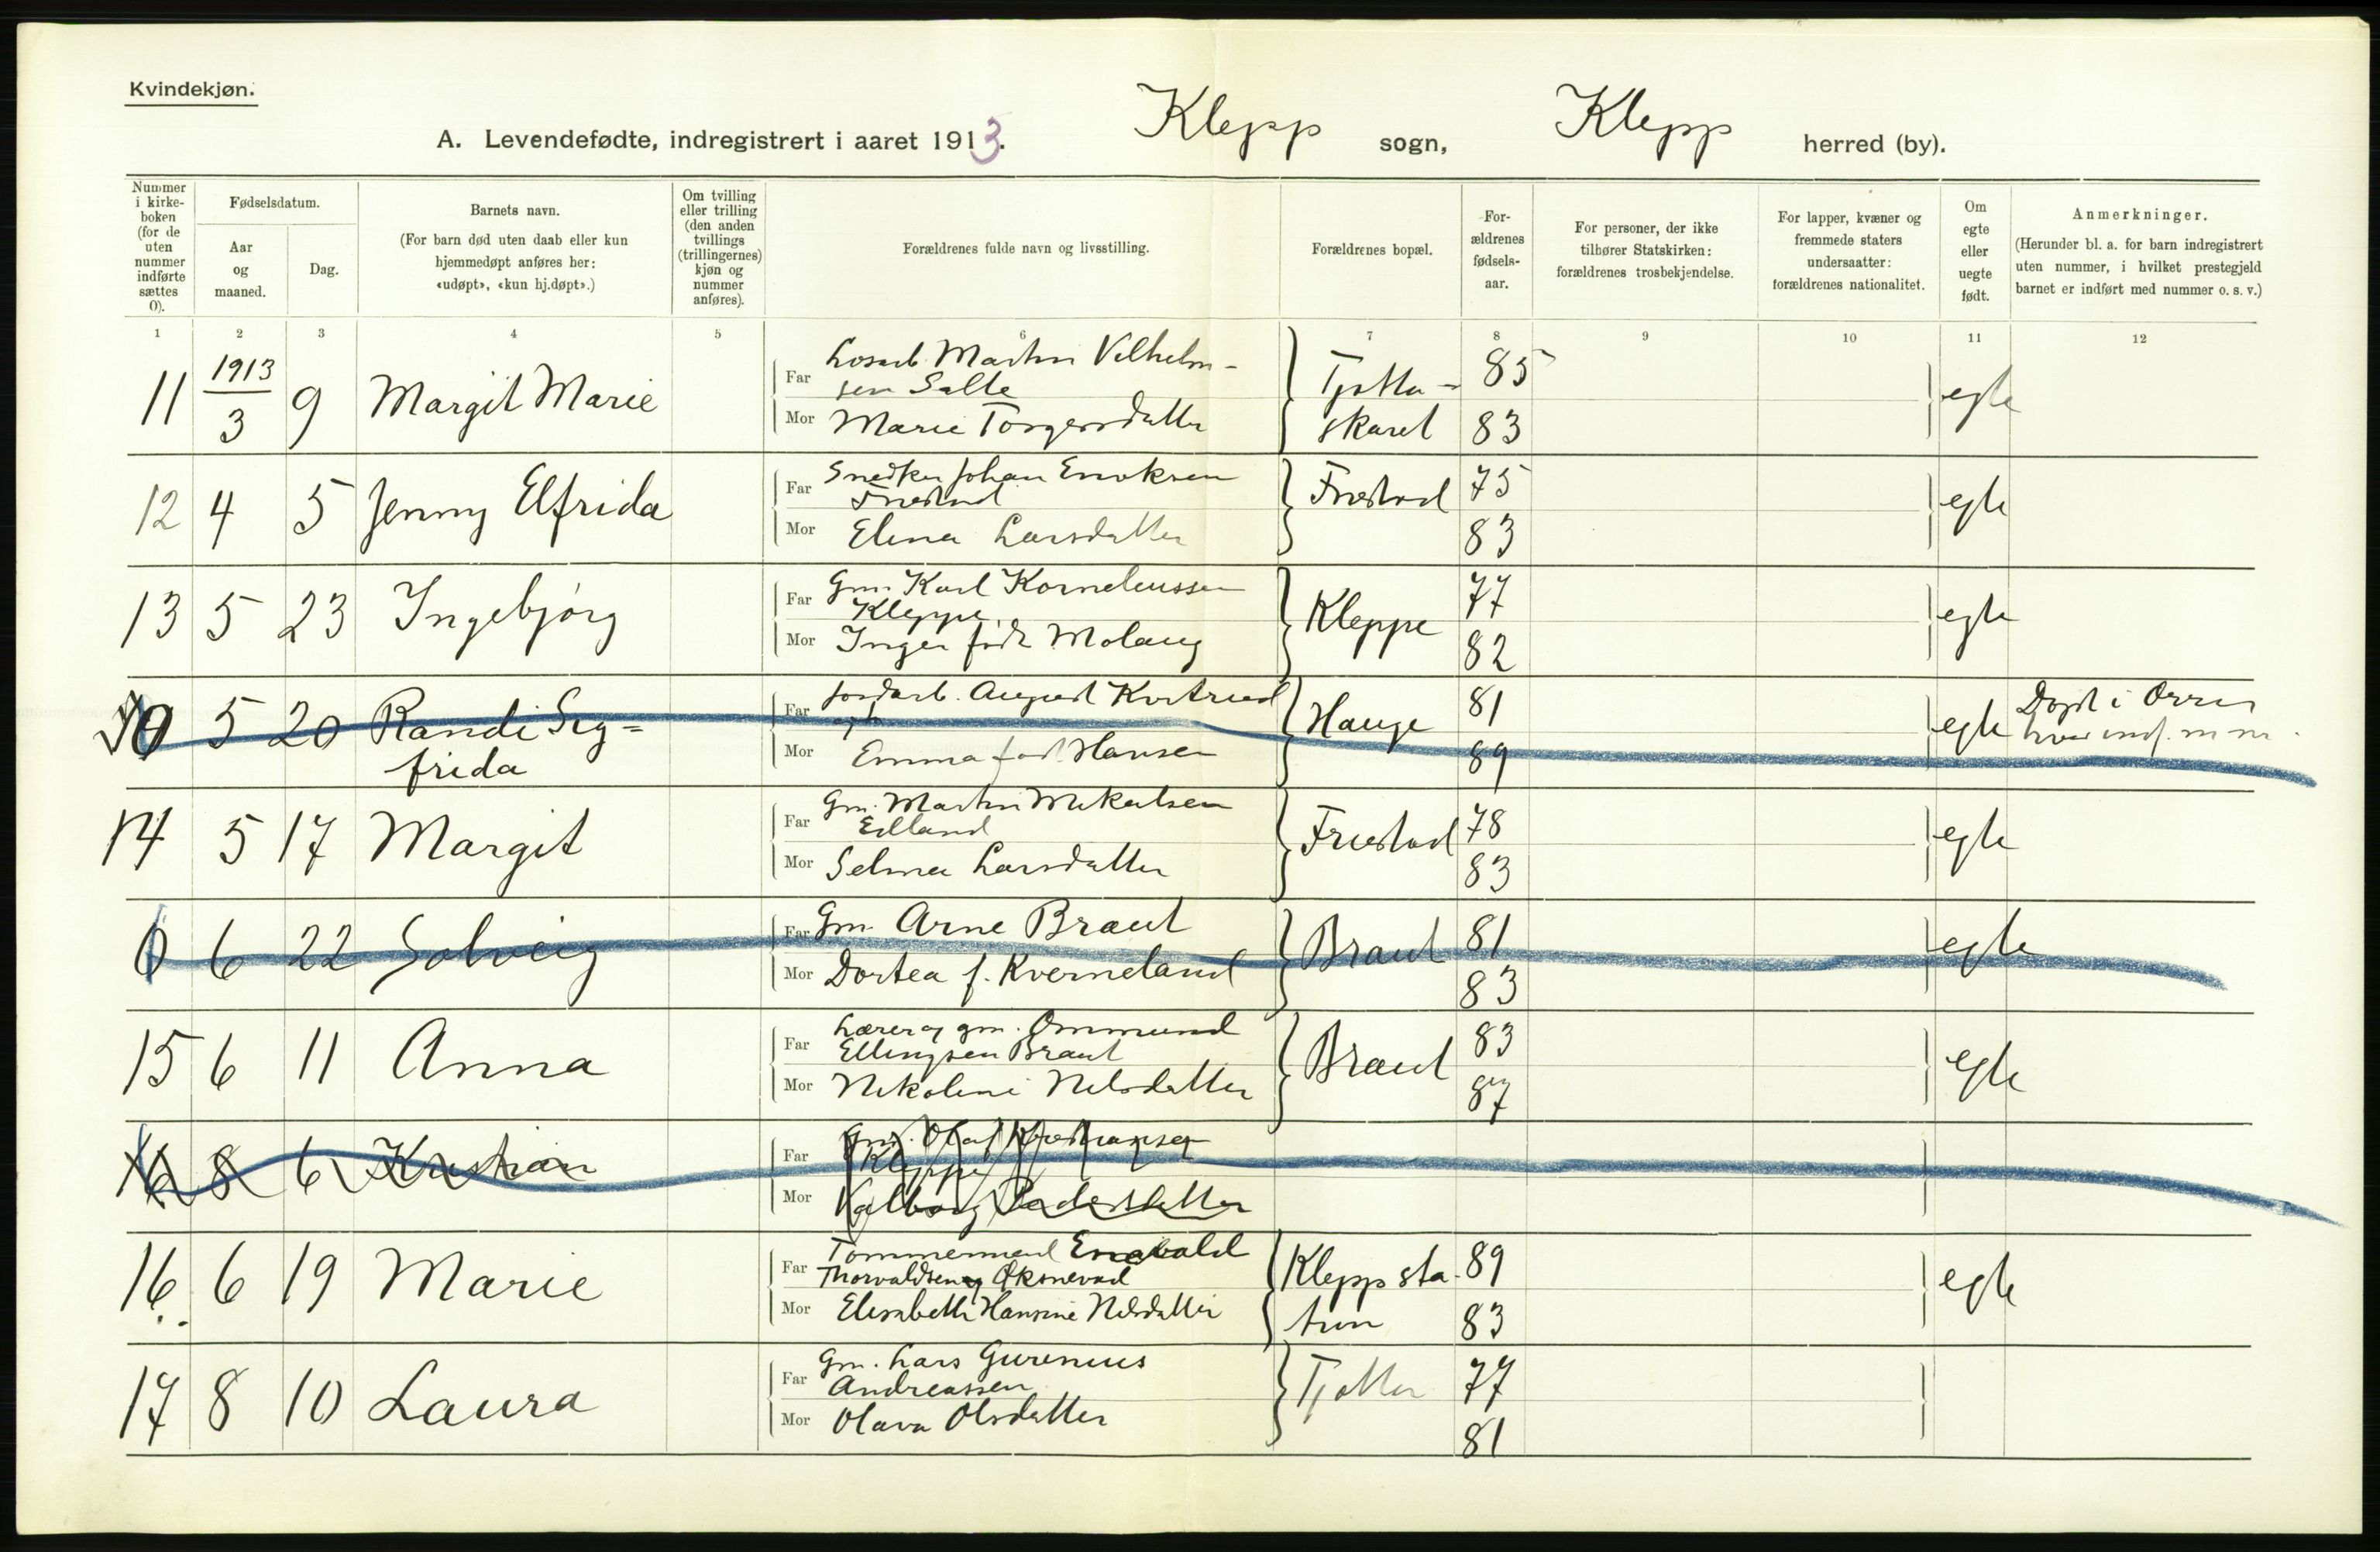 Kvindekjøn.
A. Levendefødte, indregistrert i aaret 1913. Klepp sogn, Klepp herred (by).
Nummer i kirke-boken (for de uten nummer indførte sættes 0).
Fødselsdatum.
Aar og maaned.
Dag.
Barnets navn.
(For barn død uten daab eller kun hjemmedøpt anføres her: «udøpt», «kun hj.døpt».)
Om tvilling eller trilling (den anden tvillings (trillingernes) kjøn og nummer anføres).
Forældrenes fulde navn og livsstilling.
Forældrenes bopæl.
For-ældrenes fødsels-aar.
For personer, der ikke tilhører Statskirken: forældrenes trosbekjendelse.
For lapper, kvæner og fremmede staters undersaatter: forældrenes nationalitet.
Om egte eller uegte født.
Anmerkninger.
(Herunder bl. a. for barn indregistrert uten nummer, i hvilket prestegjeld barnet er indført med nummer o. s. v.)
1 2 3 4 5 6 7 8 9 10 11 12
11 1913/3 9 Margit Marie
Far Losarb Martin Vilhelm-
sen Salte
Mor Marie Torgersdatter
Tjøtta-
skaret
85
83
egte
12 4 5 Jenny Elfrida
Far Snedker Johan Enoksen
Friestad
Mor Elina Larsdatter
Friestad
75
83
egte
13 5 23 Ingebjørg
Far Gm. Karl Korneliussen
Kleppe
Mor Inger født Molaug
Kleppe
77
82
egte
0 5 20 Randi Sig=
frida
Far Jordarb. August
Mor Emma født Hansen
Hauge
81
89
egte
Døpt i Orre
hvor indf. m nr.
14 5 17 Margit
Far Gm. Martin Mikalsen
Edland
Mor Selma Larsdatter
Friestad
78
83
egte
0 6 22 Solveig
Far Gm. Arne Braut
Mor Dortea f. Kverneland
Braut
81
83
egte
15 6 11 Anna
Far Lærer og gm. Ommund
Ellingsen Braut
Mor Nikoline Nilsdatter
Braut
83
87
egte
16 8 6 Kristian
Far Gm. Olaf Kristiansen
Kleppe
Mor Valborg Pedersdatter
16 6 19 Marie
Far Tømmermand Enevald
Thorvaldsen Øksnevad
Mor Elisabeth Hansine Nilsdatter
Klepp sta-
tion
89
83
egte
17 8 10 Laura
Far Gm. Lars Gurenius
Andreassen
Mor Olava Olsdatter
Tjøtta
77
81